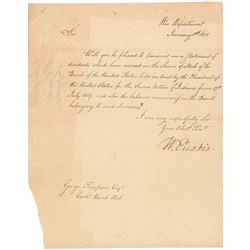 War Department
January 1811
Sir
Will you be pleased to transmit me a Statement of
dividends which have accrued on the Shares of Stock of the
Bank of the United States, held in trust by the President of
the United States for the Seneca Nation of Indians, from 17th
July 1809, and also the balance remaining in the Bank
belonging to said Indians?
I am very respectfully Sir
Your Obt Servt
W. Eustis
George Simpson Esqr
Cashr Bank U.S.